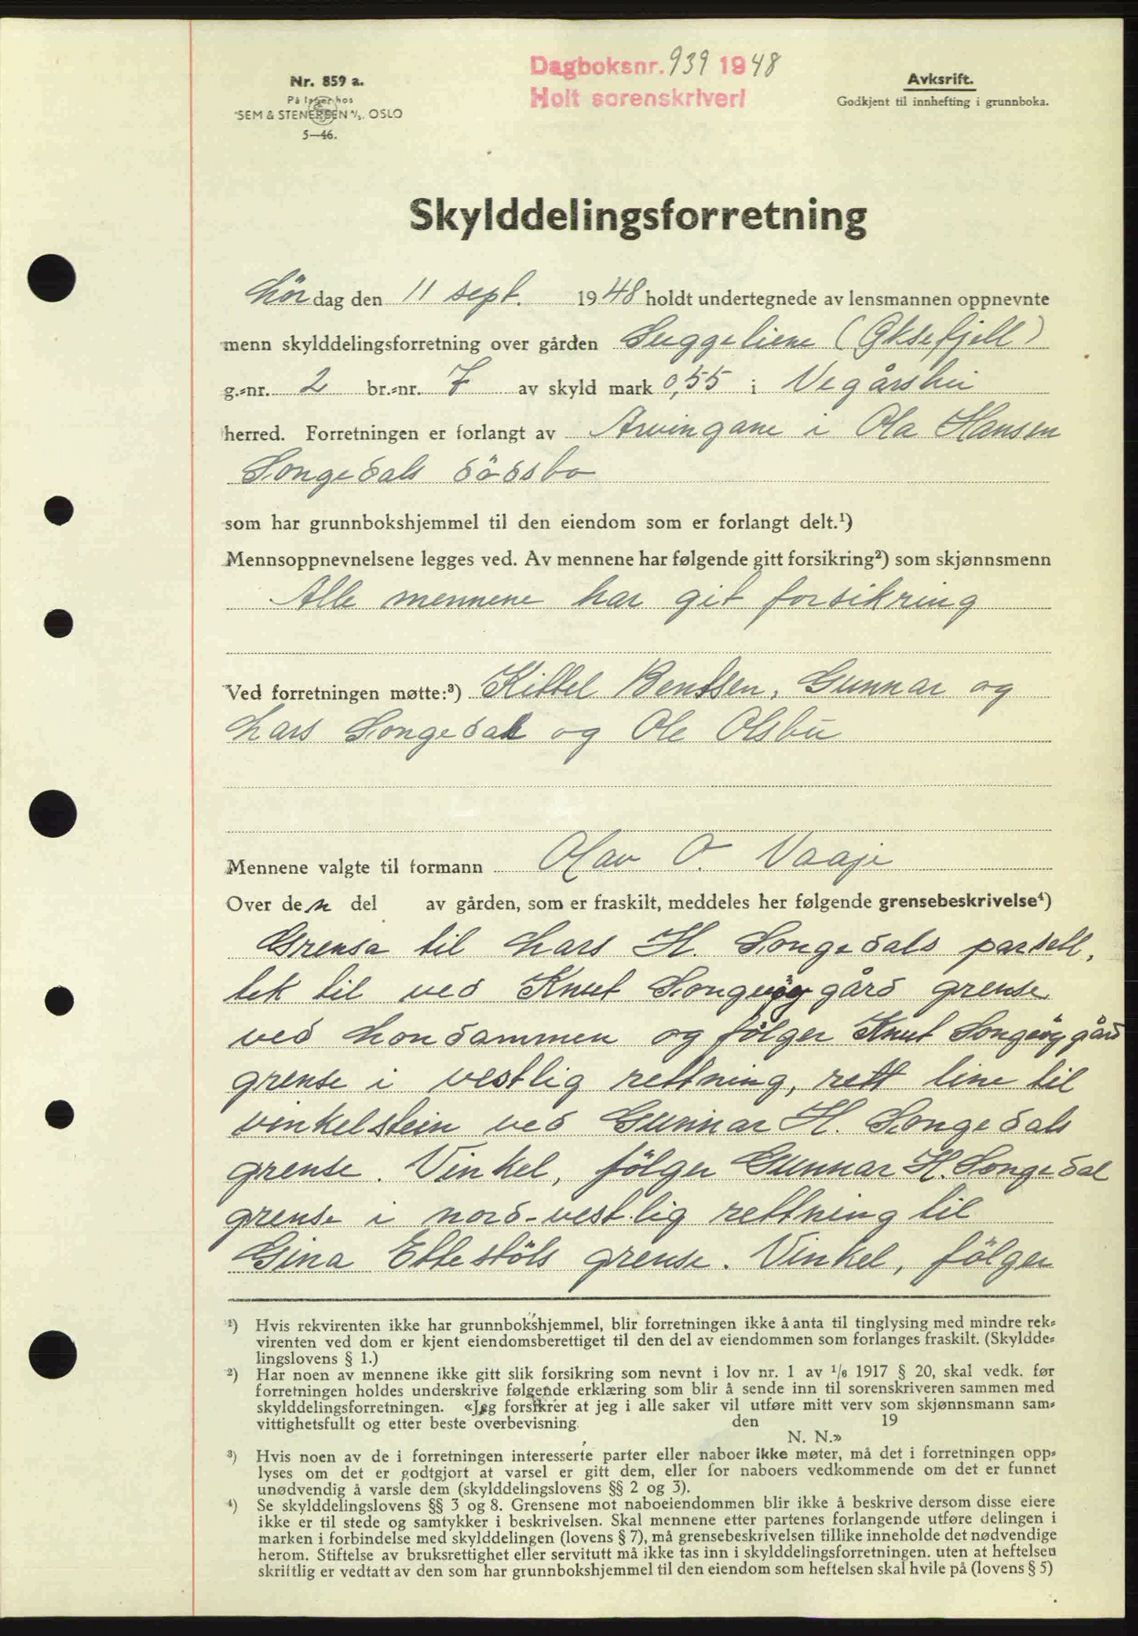 Nr. 859 a.
På lager hos
SEM & STENERSEN A/S, OSLO
5—46.
Dagboksnr. 939 1948
Holt sorenskriveri
Avksrift.
Godkjent til innhefting i grunnboka.
Skylddelingsforretning
Lördag den 11 sept. 1948 holdt undertegnede av lensmannen oppnevnte
menn skylddelingsforretning over gården Suggeliene (Oksefjell)
g.-nr. 2 br.-nr. 7 av skyld mark 0,55 i Vegårshei
herred. Forretningen er forlangt av Arvingane i Ola Hansen
Songedals dödsbo
som har grunnbokshjemmel til den eiendom som er forlangt delt.¹)
Mennsoppnevnelsene legges ved. Av mennene har følgende gitt forsikring²) som skjønnsmenn
Alle mennene har git forsikring
Ved forretningen møtte:³) Kittel Bentsen, Gunnar og
Lars Songedal og Ole Olsbu
Mennene valgte til formann Olav O. Vaaje
Over den del av gården, som er fraskilt, meddeles her følgende grensebeskrivelse⁴)
Grensa til Lars H. Songedals parsell,
tek til ved Knut Songeög gård grense
ved Londammen og fölger Knut Songeög gård
grense i vestlig rettning, rett line til
vinkelstein ved Gunnar H. Songedals
grense. Vinkel, fölger Gunnar H. Songedal
grense i nord-vestlig rettning til
Gina Ettestöls grense. Vinkel, fölger
¹) Hvis rekvirenten ikke har grunnbokshjemmel, blir forretningen ikke å anta til tinglysing med mindre rek-
virenten ved dom er kjent eiendomsberettiget til den del av eiendommen som forlanges fraskilt. (Skyldde-
lingslovens § 1.)
²) Har noen av mennene ikke gitt slik forsikring som nevnt i lov nr. 1 av 1/6 1917 § 20, skal vedk. før
forretningen holdes underskrive følgende erklæring som blir å sende inn til sorenskriveren sammen med
skylddelingsforretningen. «Jeg forsikrer at jeg i alle saker vil utføre mitt verv som skjønnsmann sam-
vittighetsfullt og etter beste overbevisning den 19
N. N.»
³) Hvis noen av de i forretningen interesserte parter eller naboer ikke møter, må det i forretningen opp-
lyses om det er godtgjort at varsel er gitt dem, eller for naboers vedkommende om det er funnet
unødvendig å varsle dem (skylddelingslovens §§ 2 og 3).
⁴) Se skylddelingslovens §§ 3 og 8. Grensene mot naboeiendommen blir ikke å beskrive dersom disse eiere
ikke er til stede og samtykker i beskrivelsen. Skal mennene etter partenes forlangende utføre delingen i
marken i forbindelse med skylddelingen (lovens § 7), må grensebeskrivelsen tillike inneholde det nødvendige
herom. Stiftelse av bruksrettighet eller servitutt må ikke tas inn i skylddelingsforretningen. uten at heftelsen
skriftlig er vedtatt av den som har grunnbokshjemmel til den eiendom som heftelsen skal hvile på (lovens § 5)